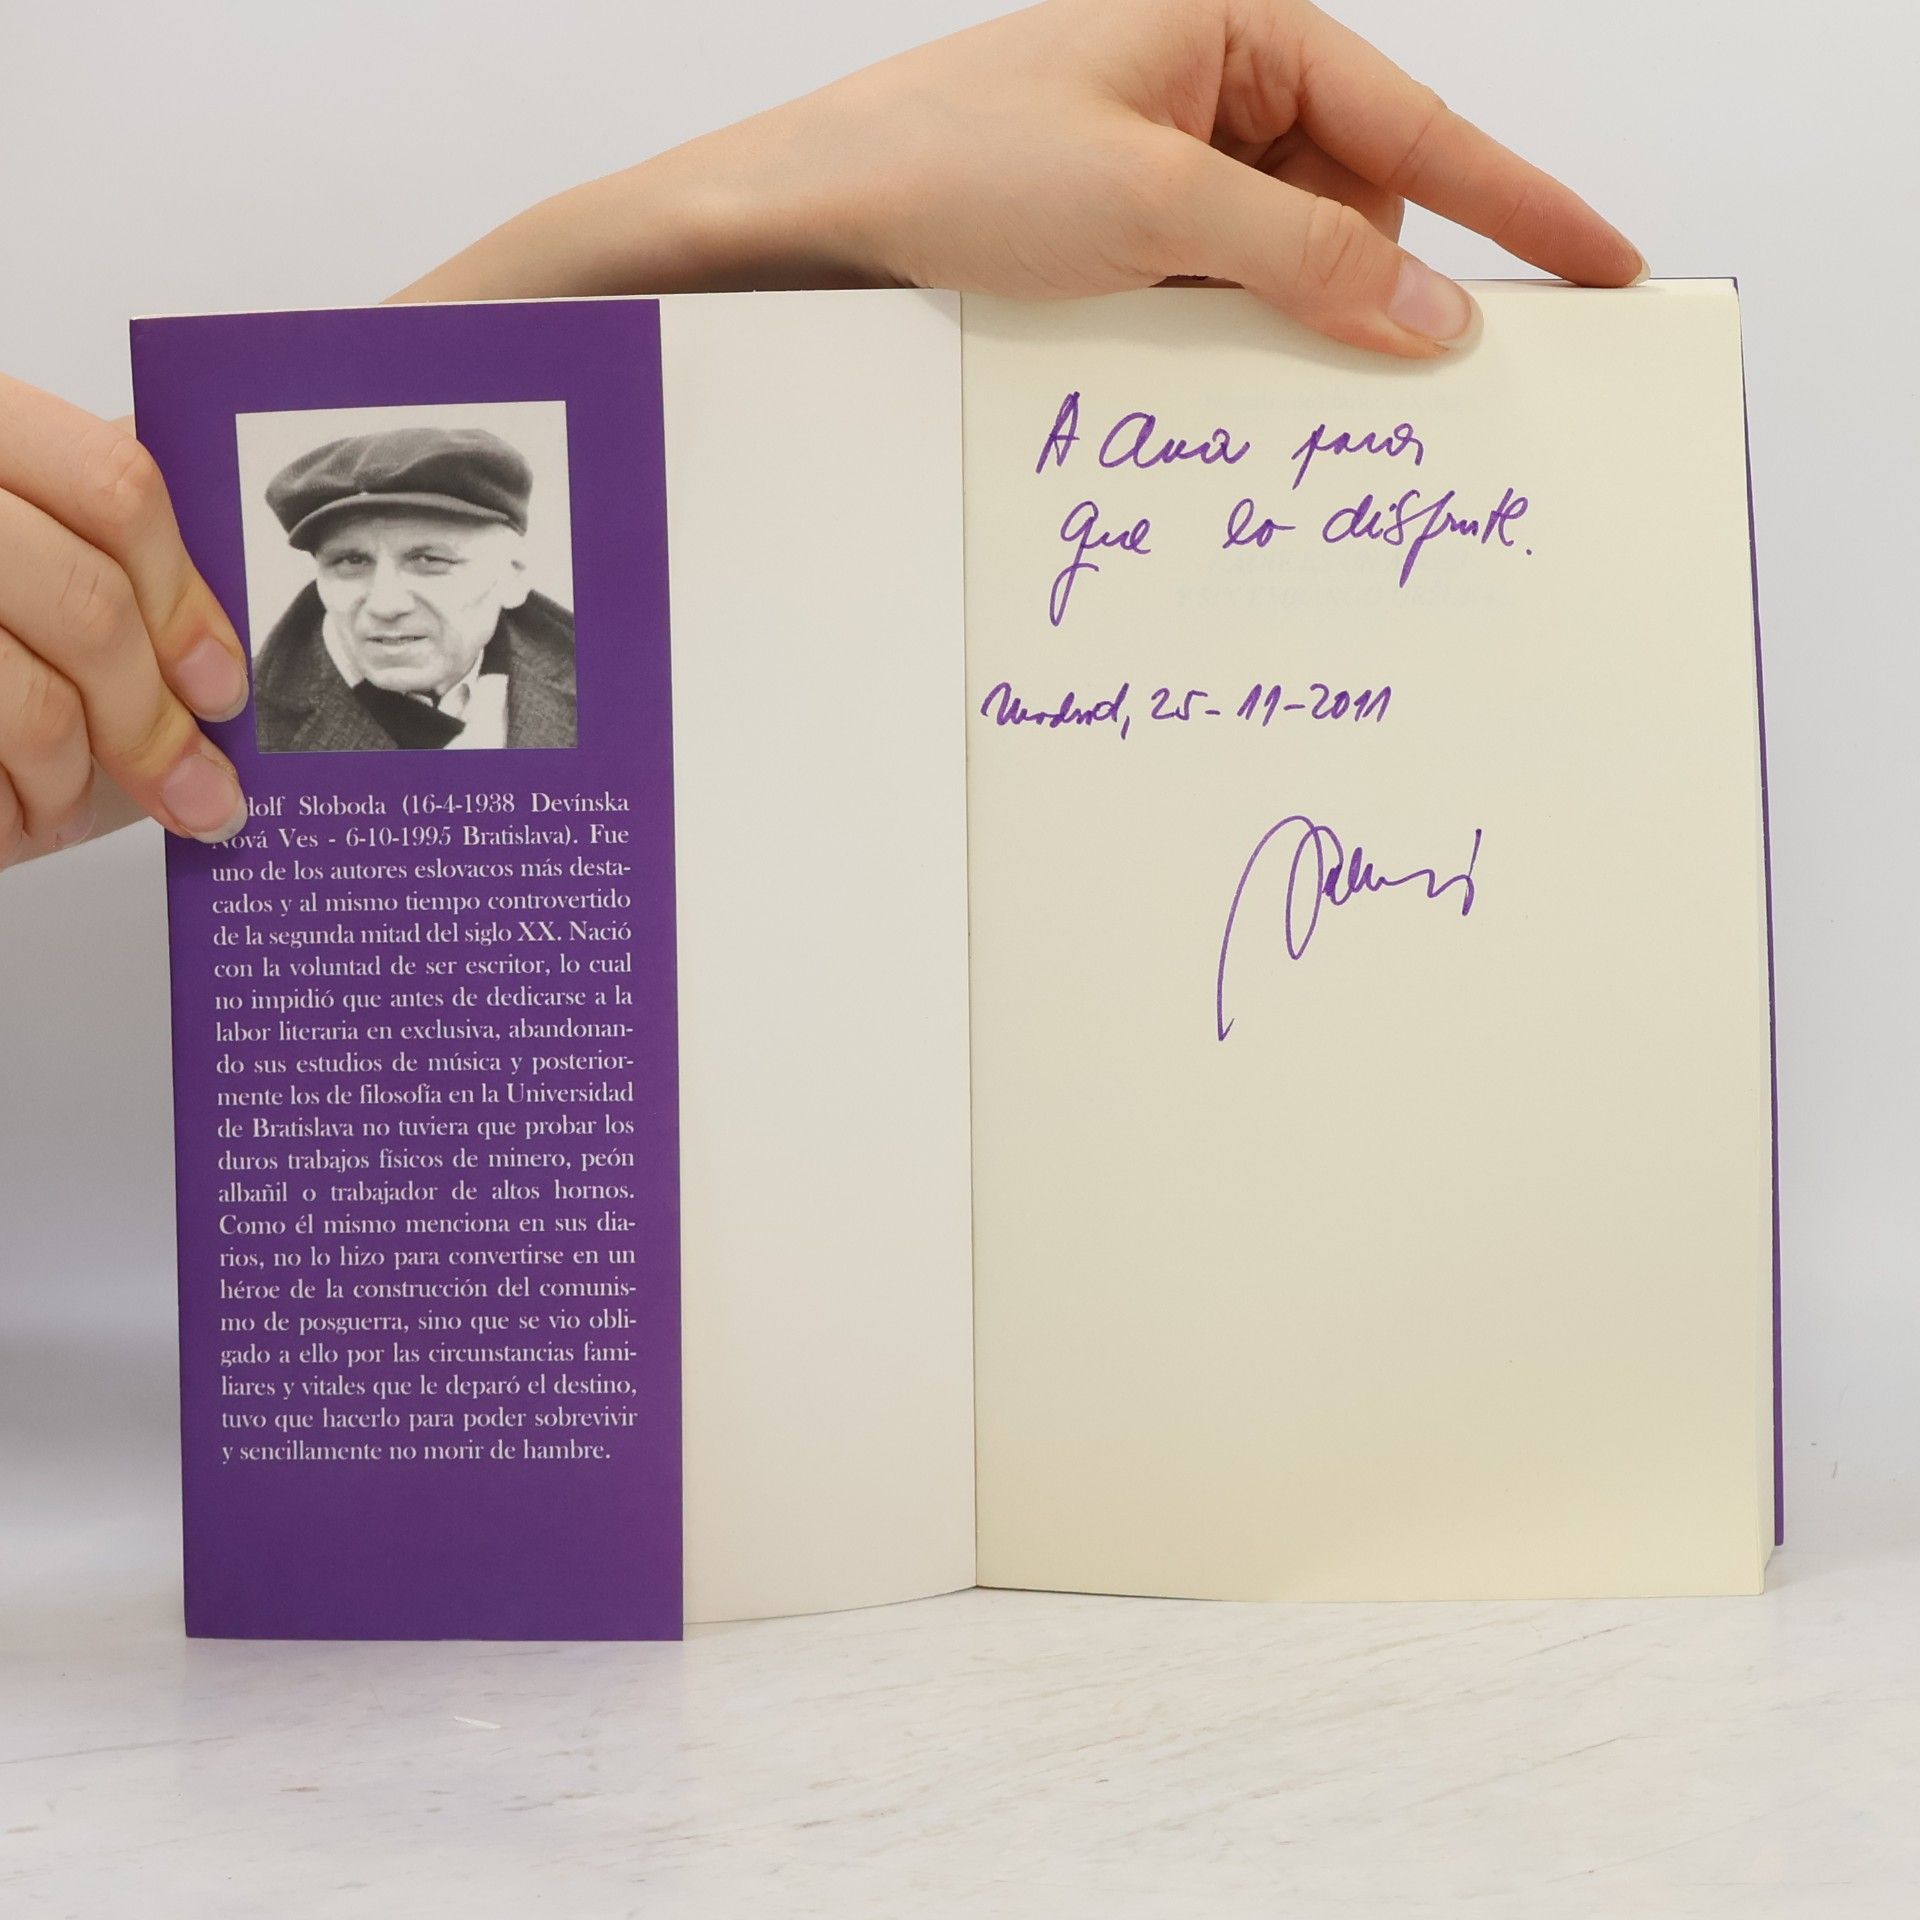 dolf Sloboda (16-4-1938 Devínska
Nová Ves - 6-10-1995 Bratislava). Fue
uno de los autores eslovacos más desta-
cados y al mismo tiempo controvertido
de la segunda mitad del siglo XX. Nació
con la voluntad de ser escritor, lo cual
no impidió que antes de dedicarse a la
labor literaria en exclusiva, abandonan-
do sus estudios de música y posterior-
mente los de filosofía en la Universidad
de Bratislava no tuviera que probar los
duros trabajos físicos de minero, peón
albañil o trabajador de altos hornos.
Como él mismo menciona en sus dia-
rios, no lo hizo para convertirse en un
héroe de la construcción del comunis-
mo de posguerra, sino que se vio obli-
gado a ello por las circunstancias fami-
liares y vitales que le deparó el destino,
tuvo que hacerlo para poder sobrevivir
y sencillamente no morir de hambre.
A Ana para
que lo disfrute.
Madrid, 25-11-2011